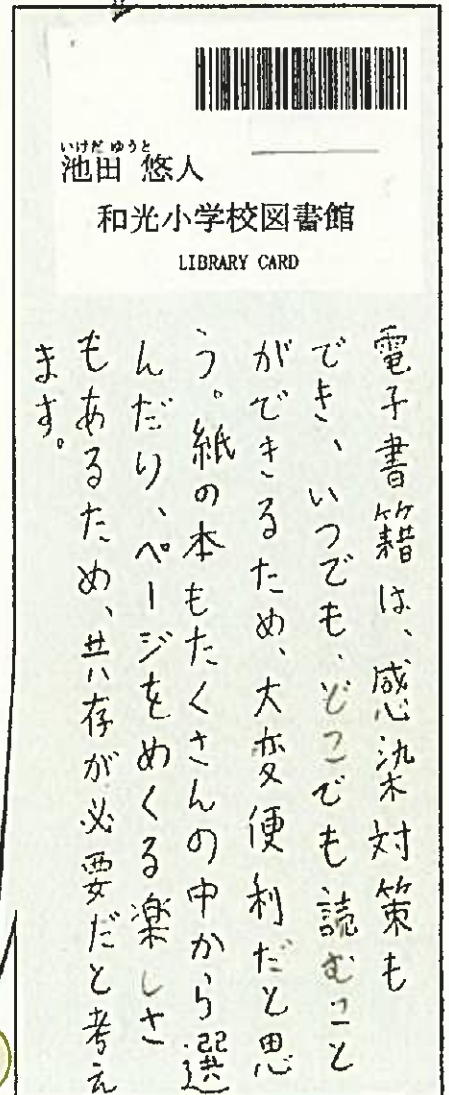 いけだ ゆうと
池田 悠人
和光小学校図書館
LIBRARY CARD
電子書籍は、感染対策も
でき、いつでも、どこでも読むこと
ができるため、大変便利だと思
う。紙の本もたくさんの中から選
んだり、ページをめくる楽しさ
もあるため、共存が必要だと考え
ます。